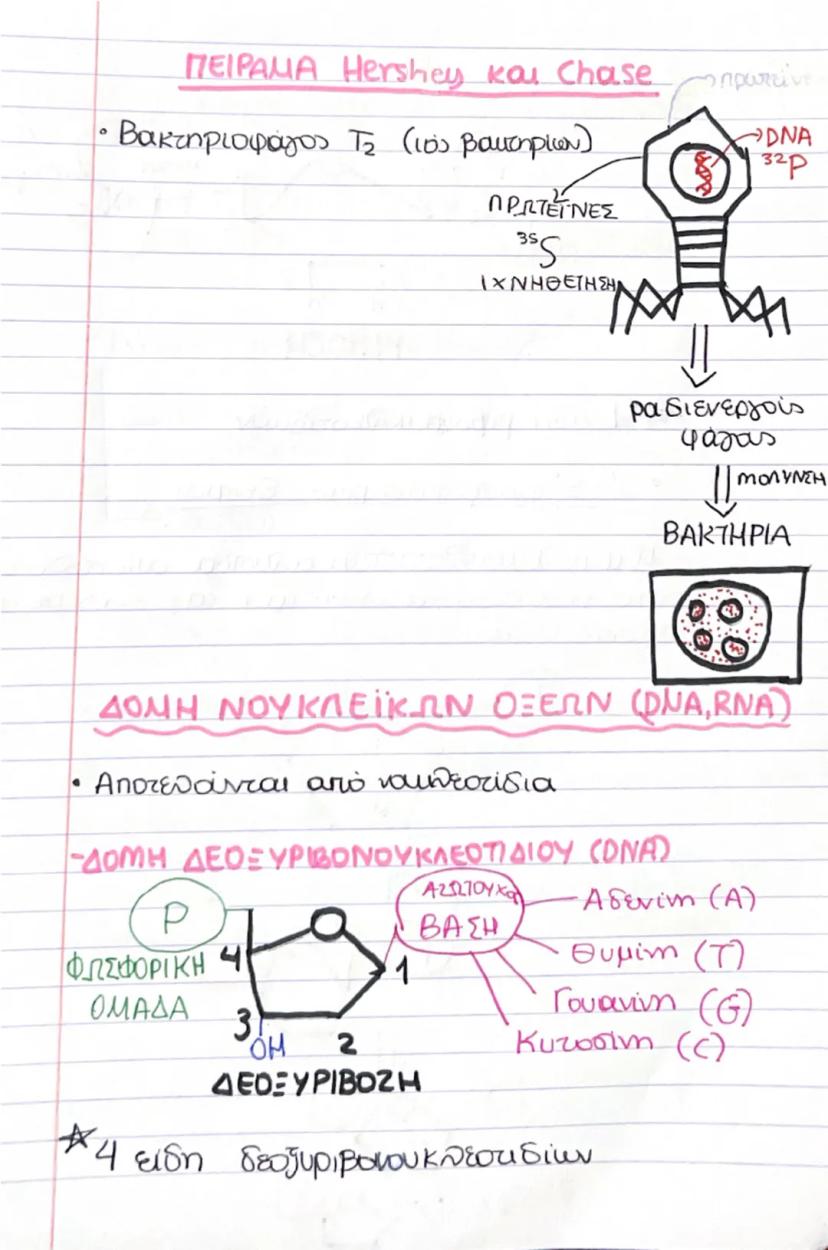 ΠΕΙΡΑΜΑ Hershey και Chase
πρωτεΐν
• Βακτηριοφάγος T₂ (ιός βακτηρίων)
DNA
³²P
ΠΡΩΤΕΪΝΕΣ
³⁵S
ΙΧΝΗΘΕΤΗΣΗ
ραδιενεργούς
φάγους
ΜΟΛΥΝΣΗ
ΒΑΚΤΗΡΙΑ
ΔΟΜΗ ΝΟΥΚΛΕΪΚΩΝ ΟΞΕΩΝ (DNA, RNA)
• Αποτελούνται από νουκλεοτίδια
-ΔΟΜΗ ΔΕΟΞΥΡΙΒΟΝΟΥΚΛΕΟΤΙΔΙΟΥ (DNA)
P
ΑΖΩΤΟΥΧα
ΒΑΣΗ
Αδενίνη (A)
ΦΩΣΦΟΡΙΚΗ
ΟΜΑΔΑ
4
1
Θυμίνη (T)
Γουανίνη (G)
3
OH
2
Κυτοσίνη (C)
ΔΕΟΞΥΡΙΒΟΖΗ
☆ 4 είδη δεοξυριβονουκλεοτιδίων